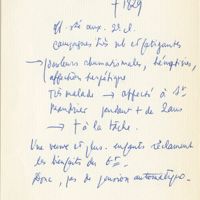 † 1829
off. sté aux. 2e cl.
campagnes très nb et fatigantes
→ douleurs rhumatismales, hémoptysies,
affection herpétique
Très malade → affecté à St
Mandrier pendant + de 2 ans
→ † à la tâche.
Une veuve et plus. enfants réclament
les bienfaits du
Donc, pas de pension automatique.